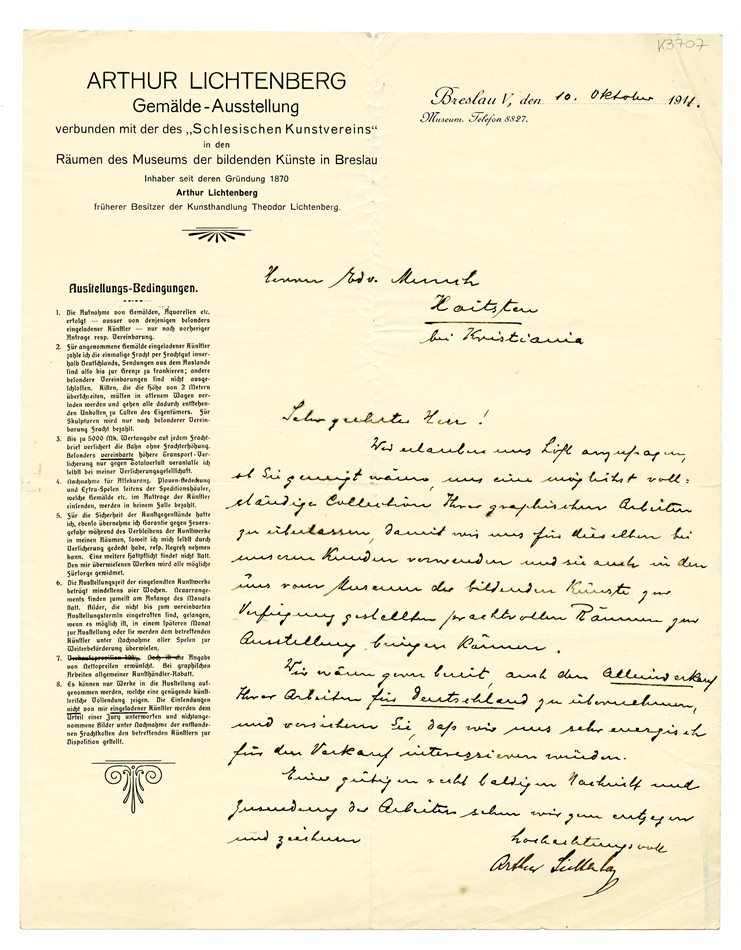 K3707
ARTHUR LICHTENBERG
Gemälde-Ausstellung
verbunden mit der des „Schlesischen Kunstvereins“
in den
Räumen des Museums der bildenden Künste in Breslau
Inhaber seit deren Gründung 1870
Arthur Lichtenberg
früherer Besitzer der Kunsthandlung Theodor Lichtenberg.
Breslau V, den 10. Oktober 1911.
Museum. Telefon 8827.
Herrn Edv. Munch
Hvitsten
bei Kristiania
Ausstellungs-Bedingungen.
1. Die Aufnahme von Gemälden, Aquarellen etc.
erfolgt — ausser von denjenigen besonders
eingeladener Künstler — nur nach vorheriger
Anfrage resp. Vereinbarung.
2. Für angenommene Gemälde eingeladener Künstler
zahle ich die einmalige Fracht per Frachtgut inner-
halb Deutschlands, Sendungen aus dem Auslande
sind also bis zur Grenze zu frankieren; andere
besondere Vereinbarungen sind nicht ausge-
schlossen. Kisten, die die Höhe von 2 Metern
überschreiten, müssen in offenem Wagen ver-
laden werden und gehen alle dadurch entstehen-
den Unkosten zu Lasten des Eigentümers. Für
Skulpturen wird nur nach besonderer Verein-
barung Fracht bezahlt.
3. Bis zu 5000 Mk. Wertangabe auf jedem Fracht-
brief versichert die Bahn ohne Frachterhöhung.
Besonders vereinbarte höhere Transport-Ver-
sicherung nur gegen Totalverlust veranlasse ich
selbst bei meiner Versicherungsgesellschaft.
4. Nachnahme für Assekuranz, Plauen-Bedeckung
und Extra-Spesen seitens der Speditionshäuser,
welche Gemälde etc. im Auftrage der Künstler
einsenden, werden in keinem Falle bezahlt.
5. Für die Sicherheit der Kunstgegenstände hafte
ich, ebenso übernehme ich Garantie gegen Feuers-
gefahr während des Verbleibens der Kunstwerke
in meinen Räumen, soweit ich mich selbst durch
Versicherung gedeckt habe, resp. Regreß nehmen
kann. Eine weitere Haftpflicht findet nicht statt.
Den mir überwiesenen Werken wird alle mögliche
Fürsorge gewidmet.
6. Die Ausstellungszeit der eingesandten Kunstwerke
beträgt mindestens vier Wochen. Neuarrange-
ments finden zumeist am Anfange des Monats
statt. Bilder, die nicht bis zum vereinbarten
Ausstellungstermin eingetroffen sind, gelangen,
wenn es möglich ist, in einem späteren Monat
zur Ausstellung oder sie werden dem betreffenden
Künstler unter Nachnahme aller Spesen zur
Weiterbeförderung überwiesen.
7. Verkaufsprovision 10%. Doch ist die Angabe
von Nettopreisen erwünscht. Bei graphischen
Arbeiten allgemeiner Kunsthändler-Rabatt.
8. Es können nur Werke in die Ausstellung auf-
genommen werden, welche eine genügende künst-
lerische Vollendung zeigen. Die Einsendungen
nicht von mir eingeladener Künstler werden dem
Urteil einer Jury unterworfen und nichtange-
nommene Bilder unter Nachnahme der entstande-
nen Frachtkosten den betreffenden Künstlern zur
Disposition gestellt.
Sehr geehrter Herr!
Wir erlauben uns höfl. anzufragen,
ob Sie geneigt wären, uns eine möglichst voll-
ständige Collection Ihrer graphischen Arbeiten
zu überlassen, damit wir uns für dieselben bei
unseren Kunden verwenden und sie auch in den
uns vom Museum der bildenden Künste zur
Verfügung gestellten prachtvollen Räumen zur
Ausstellung bringen können.
Wir wären gern bereit, auch den Alleinverkauf
Ihrer Arbeiten für Deutschland zu übernehmen,
und versichern Sie, daß wir uns sehr energisch
für den Verkauf interessieren würden.
Einer gütigen recht baldigen Nachricht und
Zusendung der Arbeiten sehen wir gern entgegen
und zeichnen
hochachtungsvoll
Arthur Lichtenberg